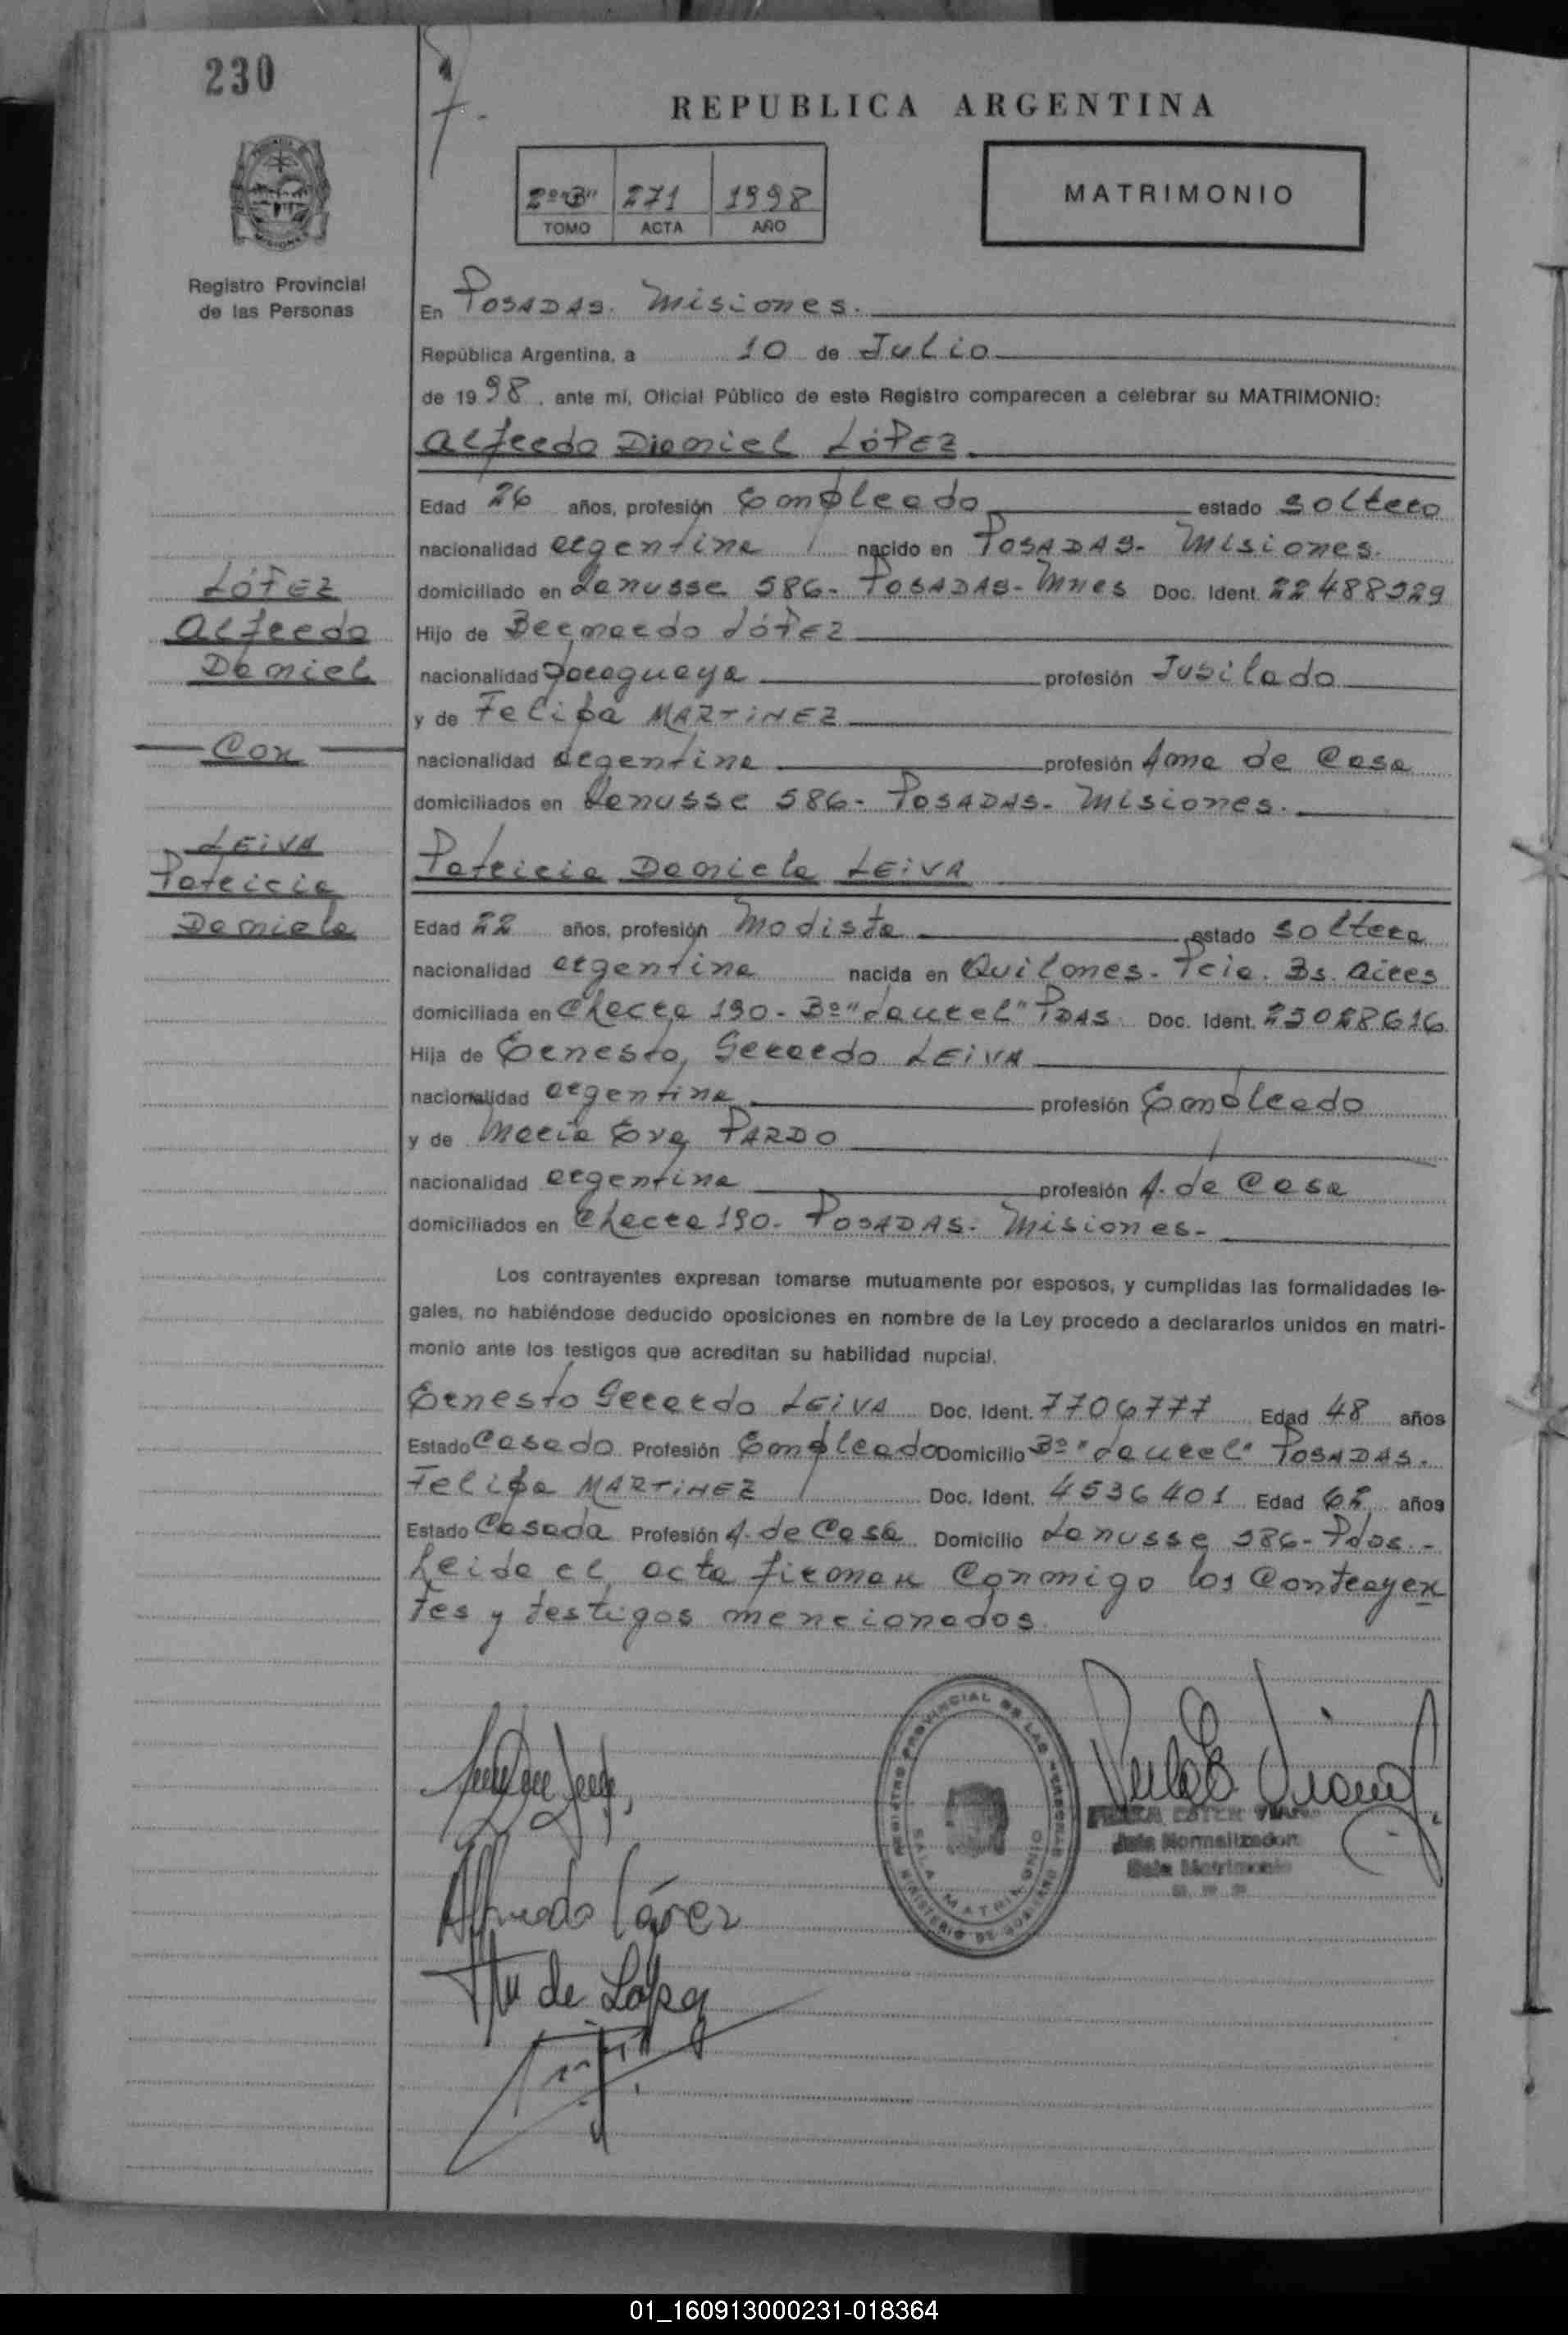 230
REPUBLICA ARGENTINA
2º "B" 271 1998
TOMO ACTA AÑO
MATRIMONIO
Registro Provincial
de las Personas
En POSADAS. Misiones.
República Argentina, a 10 de Julio
de 1998, ante mí, Oficial Público de este Registro comparecen a celebrar su MATRIMONIO:
Alfredo Daniel LÓPEZ
Edad 26 años, profesión Empleado estado soltero
nacionalidad argentina nacido en POSADAS- Misiones.
domiciliado en Lanusse 586- POSADAS- Mnes Doc. Ident. 22488929
Hijo de Bernardo LÓPEZ
nacionalidad paraguaya profesión Jubilado
y de Felipa MARTINEZ
nacionalidad argentina profesión Ama de Casa
domiciliados en Lanusse 586- POSADAS- Misiones.
LÓPEZ
Alfredo
Daniel
Con
LEIVA
Patricia
Daniela
Patricia Daniela LEIVA
Edad 22 años, profesión Modista estado soltera
nacionalidad argentina nacida en Quilmes- Pcia. Bs. Aires
domiciliada en Checra 190- Bº "Laurel" PDAS Doc. Ident.
Hija de Ernesto Gerardo LEIVA
nacionalidad argentina profesión Empleado
y de María Eva PARDO
nacionalidad argentina profesión A. de Casa
domiciliados en Checra 190- POSADAS- Misiones-
Los contrayentes expresan tomarse mutuamente por esposos, y cumplidas las formalidades le-
gales, no habiéndose deducido oposiciones en nombre de la Ley procedo a declararlos unidos en matri-
monio ante los testigos que acreditan su habilidad nupcial.
Ernesto Gerardo LEIVA Doc. Ident. 7706777 Edad 48 años
Estado Casado Profesión Empleado Domicilio Bº "Laurel" POSADAS.
Felipa MARTINEZ Doc. Ident. 4536401 Edad 62 años
Estado Casada Profesión A. de Casa Domicilio Lanusse 586- Pdas.-
Leida el acta firman Conmigo los Contrayen
tes y testigos mencionados
REGISTRO PROVINCIAL DE LAS PERSONAS
SALA MATRIMONIO
MINISTERIO DE GOBIERNO
ESTER
Jefe Normalizador
Sala Matrimonio
Alfredo López
de López
01_160913000231-018364